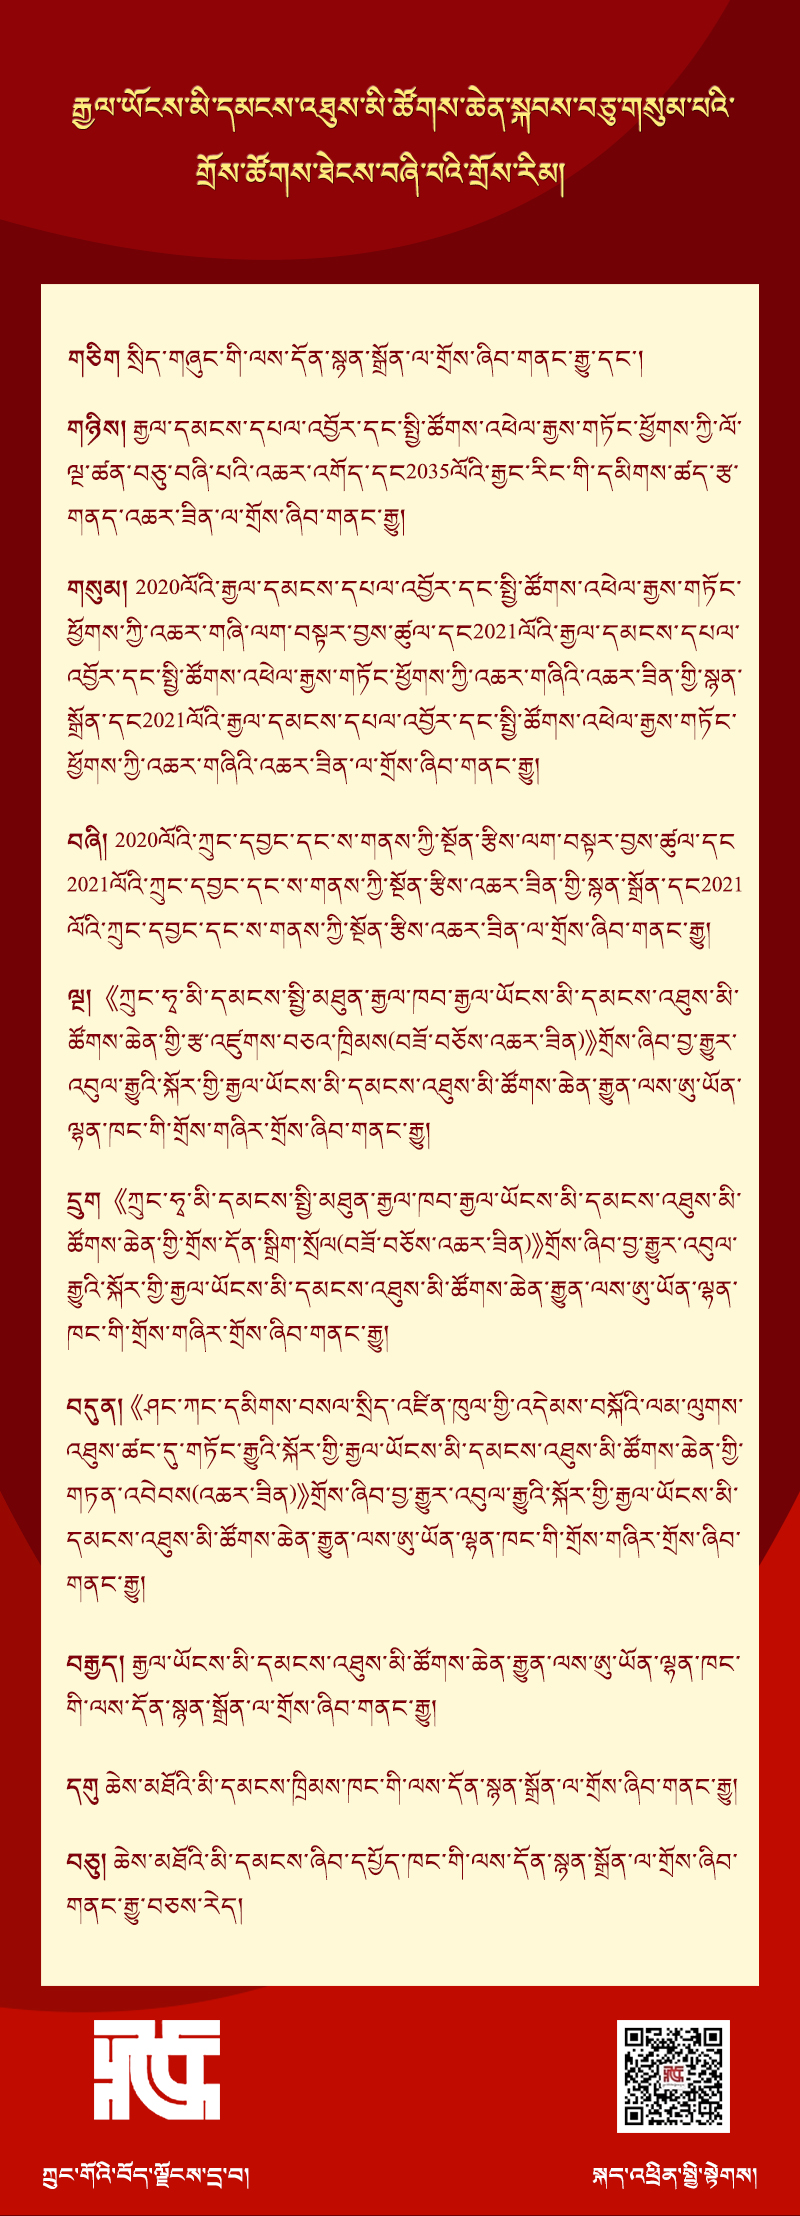 རྒྱལ་ཡོངས་མི་དམངས་འཐུས་མི་ཚོགས་ཆེན་སྐབས་བཅུ་གསུམ་པའི་
གྲོས་ཚོགས་ཐེངས་བཞི་པའི་གྲོས་རིམ།
གཅིག སྲིད་གཞུང་གི་ལས་དོན་སྙན་སྒྲོན་ལ་གྲོས་ཞིབ་གནང་རྒྱུ་དང་།
གཉིས། རྒྱལ་དམངས་དཔལ་འབྱོར་དང་སྤྱི་ཚོགས་འཕེལ་རྒྱས་གཏོང་ཕྱོགས་ཀྱི་ལོ་
ལྔ་ཚན་བཅུ་བཞི་པའི་འཆར་འགོད་དང2035ལོའི་རྒྱང་རིང་གི་དམིགས་ཚད་རྩ་
གནད་འཆར་ཟིན་ལ་གྲོས་ཞིབ་གནང་རྒྱུ།
གསུམ། 2020ལོའི་རྒྱལ་དམངས་དཔལ་འབྱོར་དང་སྤྱི་ཚོགས་འཕེལ་རྒྱས་གཏོང་
ཕྱོགས་ཀྱི་འཆར་གཞི་ལག་བསྟར་བྱས་ཚུལ་དང2021ལོའི་རྒྱལ་དམངས་དཔལ་
འབྱོར་དང་སྤྱི་ཚོགས་འཕེལ་རྒྱས་གཏོང་ཕྱོགས་ཀྱི་འཆར་གཞིའི་འཆར་ཟིན་གྱི་སྙན་
སྒྲོན་དང2021ལོའི་རྒྱལ་དམངས་དཔལ་འབྱོར་དང་སྤྱི་ཚོགས་འཕེལ་རྒྱས་གཏོང་
ཕྱོགས་ཀྱི་འཆར་གཞིའི་འཆར་ཟིན་ལ་གྲོས་ཞིབ་གནང་རྒྱུ།
བཞི། 2020ལོའི་ཀྲུང་དབྱང་དང་ས་གནས་ཀྱི་སྔོན་རྩིས་ལག་བསྟར་བྱས་ཚུལ་དང
2021ལོའི་ཀྲུང་དབྱང་དང་ས་གནས་ཀྱི་སྔོན་རྩིས་འཆར་ཟིན་གྱི་སྙན་སྒྲོན་དང2021
ལོའི་ཀྲུང་དབྱང་དང་ས་གནས་ཀྱི་སྔོན་རྩིས་འཆར་ཟིན་ལ་གྲོས་ཞིབ་གནང་རྒྱུ།
ལྔ། 《ཀྲུང་ཧྭ་མི་དམངས་སྤྱི་མཐུན་རྒྱལ་ཁབ་རྒྱལ་ཡོངས་མི་དམངས་འཐུས་མི་
ཚོགས་ཆེན་གྱི་རྩ་འཛུགས་བཅའ་ཁྲིམས(བཟོ་བཅོས་འཆར་ཟིན)》གྲོས་ཞིབ་བྱ་རྒྱུར་
འབུལ་རྒྱུའི་སྐོར་གྱི་རྒྱལ་ཡོངས་མི་དམངས་འཐུས་མི་ཚོགས་ཆེན་རྒྱུན་ལས་ཨུ་ཡོན་
ལྷན་ཁང་གི་གྲོས་གཞིར་གྲོས་ཞིབ་གནང་རྒྱུ།
དྲུག 《ཀྲུང་ཧྭ་མི་དམངས་སྤྱི་མཐུན་རྒྱལ་ཁབ་རྒྱལ་ཡོངས་མི་དམངས་འཐུས་མི་
ཚོགས་ཆེན་གྱི་གྲོས་དོན་སྒྲིག་སྲོལ(བཟོ་བཅོས་འཆར་ཟིན)》གྲོས་ཞིབ་བྱ་རྒྱུར་འབུལ་
རྒྱུའི་སྐོར་གྱི་རྒྱལ་ཡོངས་མི་དམངས་འཐུས་མི་ཚོགས་ཆེན་རྒྱུན་ལས་ཨུ་ཡོན་ལྷན་
ཁང་གི་གྲོས་གཞིར་གྲོས་ཞིབ་གནང་རྒྱུ།
བདུན། 《ཤང་ཀང་དམིགས་བསལ་སྲིད་འཛིན་ཁུལ་གྱི་འདེམས་བསྐོའི་ལམ་ལུགས་
འཐུས་ཚང་དུ་གཏོང་རྒྱུའི་སྐོར་གྱི་རྒྱལ་ཡོངས་མི་དམངས་འཐུས་མི་ཚོགས་ཆེན་གྱི་
གཏན་འབེབས(འཆར་ཟིན)》གྲོས་ཞིབ་བྱ་རྒྱུར་འབུལ་རྒྱུའི་སྐོར་གྱི་རྒྱལ་ཡོངས་མི་
དམངས་འཐུས་མི་ཚོགས་ཆེན་རྒྱུན་ལས་ཨུ་ཡོན་ལྷན་ཁང་གི་གྲོས་གཞིར་གྲོས་ཞིབ་
གནང་རྒྱུ།
བརྒྱད། རྒྱལ་ཡོངས་མི་དམངས་འཐུས་མི་ཚོགས་ཆེན་རྒྱུན་ལས་ཨུ་ཡོན་ལྷན་ཁང་
གི་ལས་དོན་སྙན་སྒྲོན་ལ་གྲོས་ཞིབ་གནང་རྒྱུ།
དགུ ཆེས་མཐོའི་མི་དམངས་ཁྲིམས་ཁང་གི་ལས་དོན་སྙན་སྒྲོན་ལ་གྲོས་ཞིབ་གནང་རྒྱུ།
བཅུ། ཆེས་མཐོའི་མི་དམངས་ཞིབ་དཔྱོད་ཁང་གི་ལས་དོན་སྙན་སྒྲོན་ལ་གྲོས་ཞིབ་
གནང་རྒྱུ་བཅས་རེད།
ཀྲུང་གོའི་བོད་ལྗོངས་དྲ་བ།
སྐད་འཕྲིན་སྤྱི་སྟེགས།